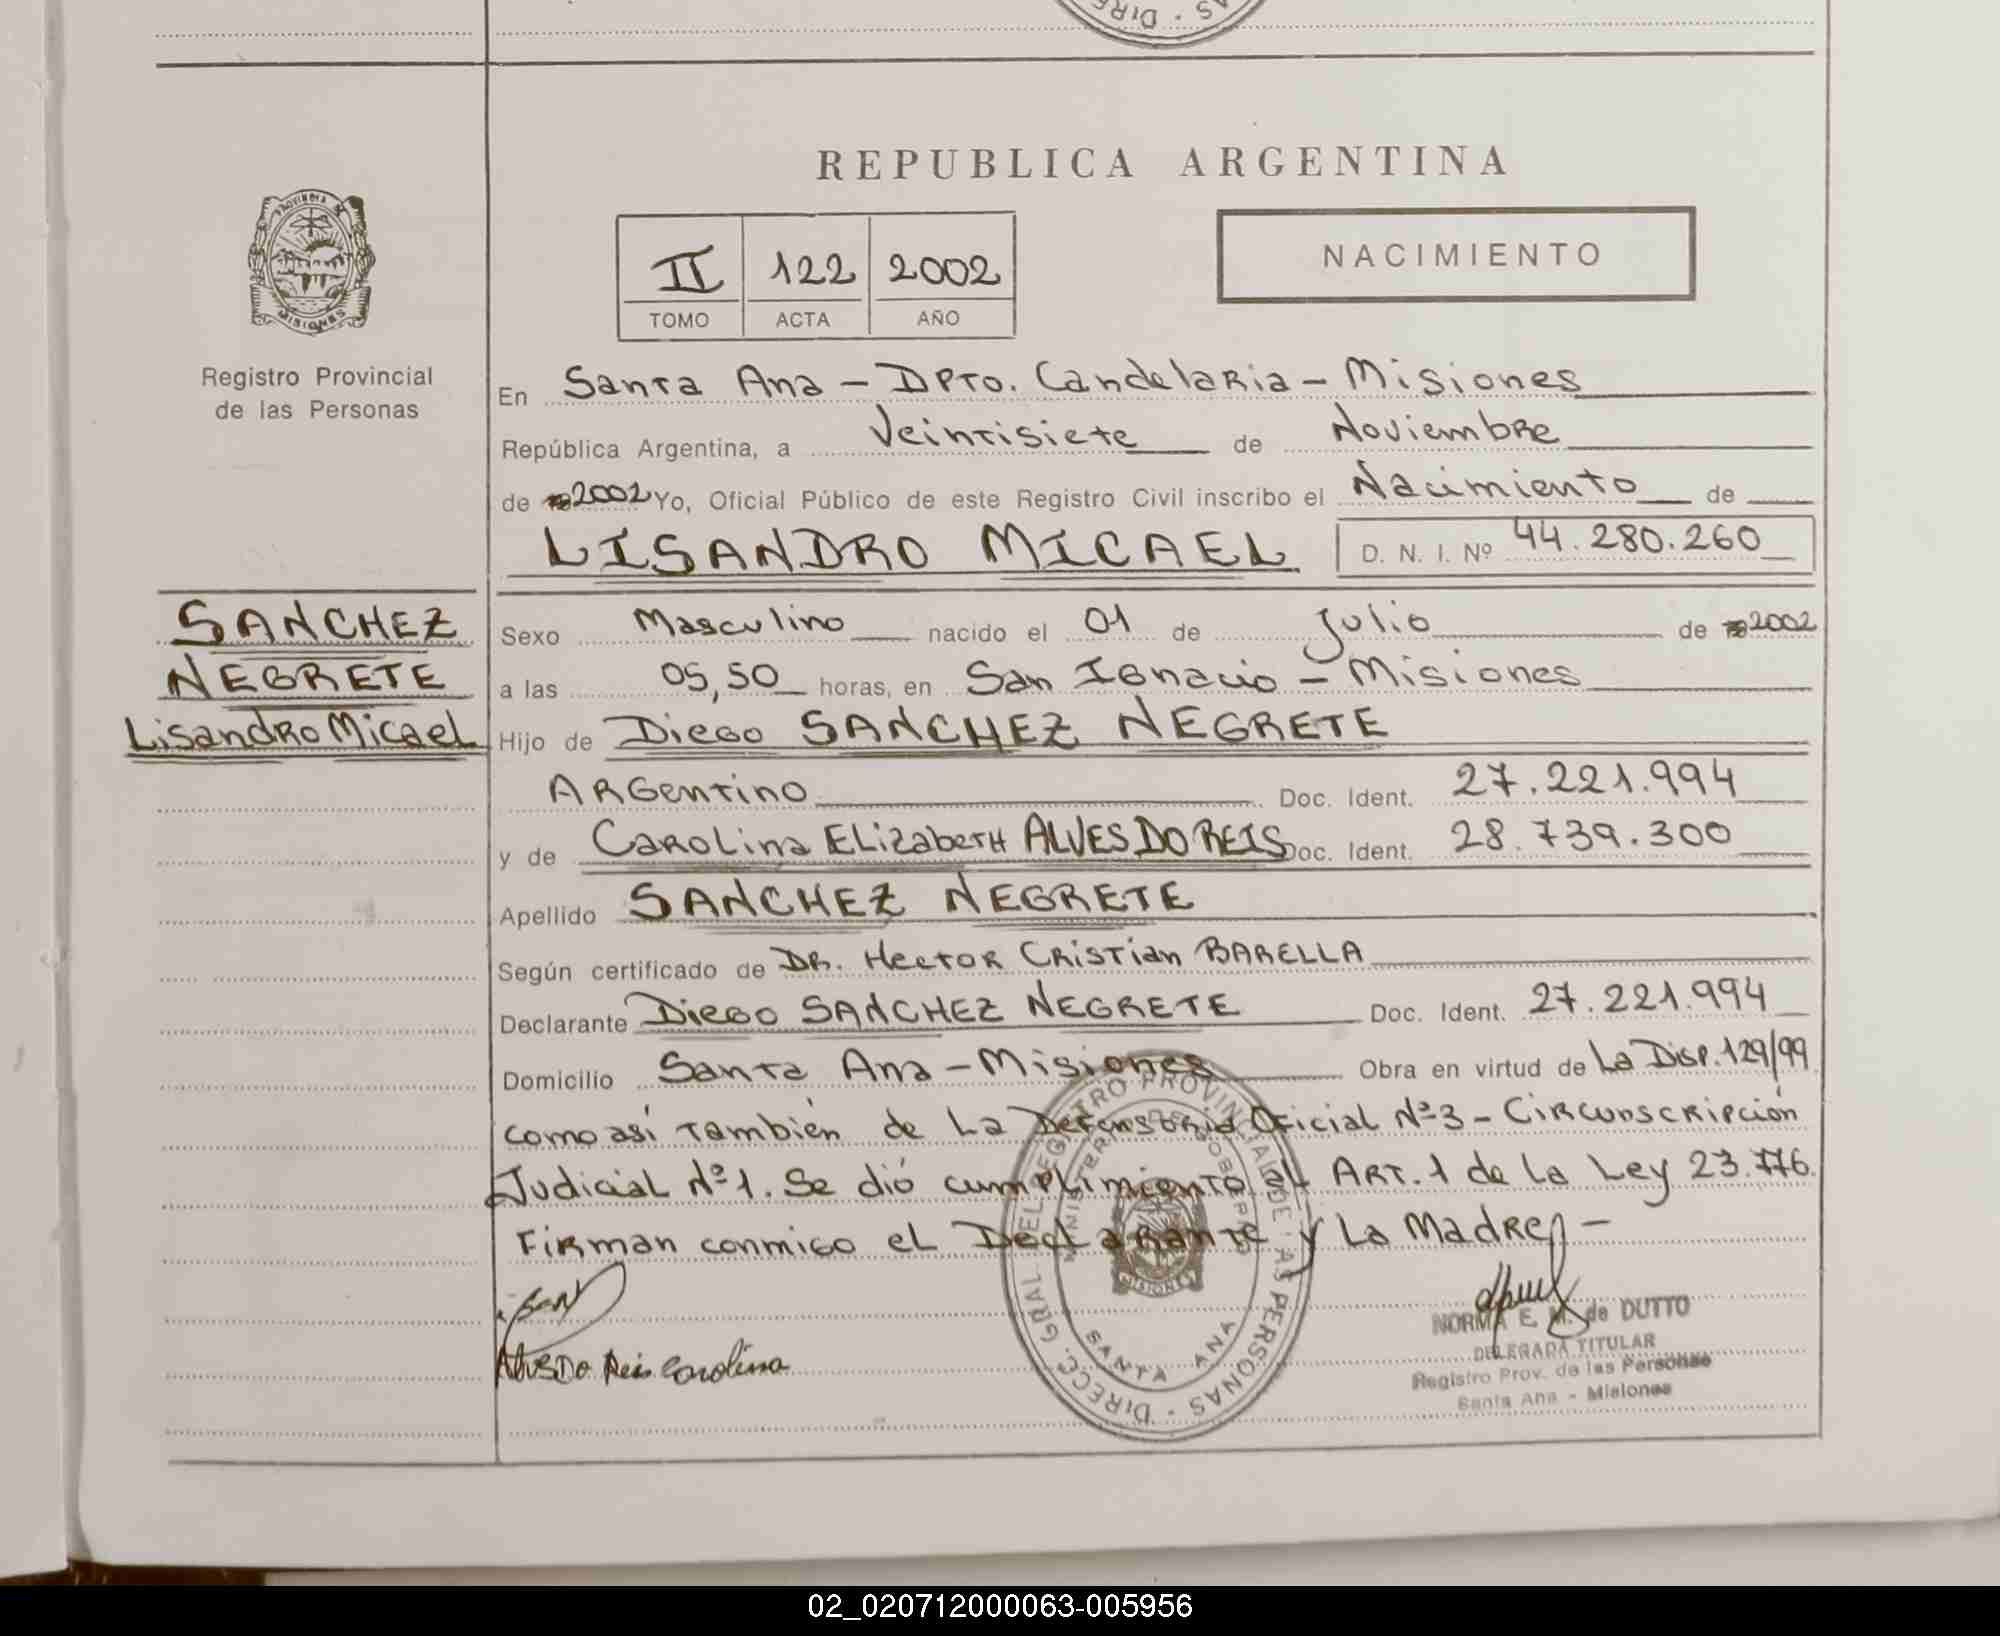 REPUBLICA ARGENTINA
PROVINCIA DE
MISIONES
Registro Provincial
de las Personas
II 122 2002
TOMO ACTA AÑO
NACIMIENTO
En Santa Ana - Dpto. Candelaria - Misiones
República Argentina, a Veintisiete de Noviembre
de 2002 Yo, Oficial Público de este Registro Civil inscribo el Nacimiento de
LISANDRO MICAEL D. N. I. Nº 44.280.260
SANCHEZ
NEGRETE
Lisandro Micael
Sexo Masculino nacido el 01 de Julio de 2002
a las 05,50 horas, en San Ignacio - Misiones
Hijo de Diego SANCHEZ NEGRETE
Argentino Doc. Ident. 27.221.994
y de Carolina Elizabeth ALVES DO REIS Doc. Ident. 28.739.300
Apellido SANCHEZ NEGRETE
Según certificado de DR. Hector Cristian BARELLA
Declarante Diego SANCHEZ NEGRETE Doc. Ident. 27.221.994
Domicilio Santa Ana - Misiones Obra en virtud de La Disp. 129/99
como así también de La Defensoria Oficial Nº 3 - Circunscripción
Judicial Nº 1. Se dió cumplimiento al Art. 1 de la Ley 23.776.
Firman conmigo el Declarante y La Madre -
Alves Do Reis Carolina
DIRECC. GRAL DEL REGISTRO PROVINCIAL DE LAS PERSONAS
MINISTERIO DE GOBIERNO
MISIONES
SANTA ANA
NORMA E. M. de DUTTO
DELEGADA TITULAR
Registro Prov. de las Personas
Santa Ana - Misiones
02_020712000063-005956